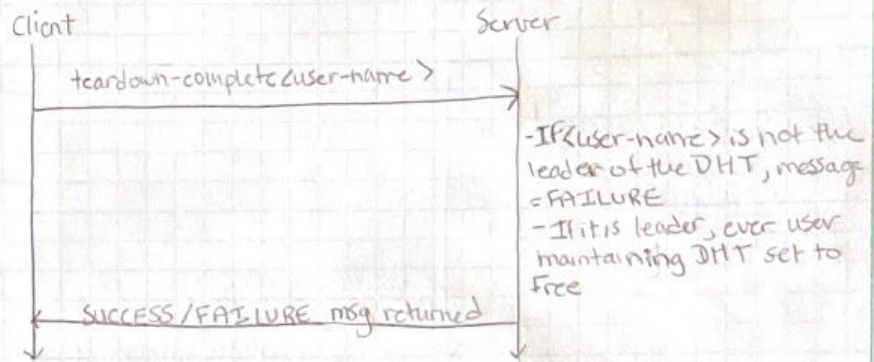 Client
Server
teardown-complete<user-name>
-If<user-name> is not the
leader of the DHT, message
=FAILURE
-If it is leader, ever user
maintaining DHT set to
Free
SUCCESS/FAILURE msg returned